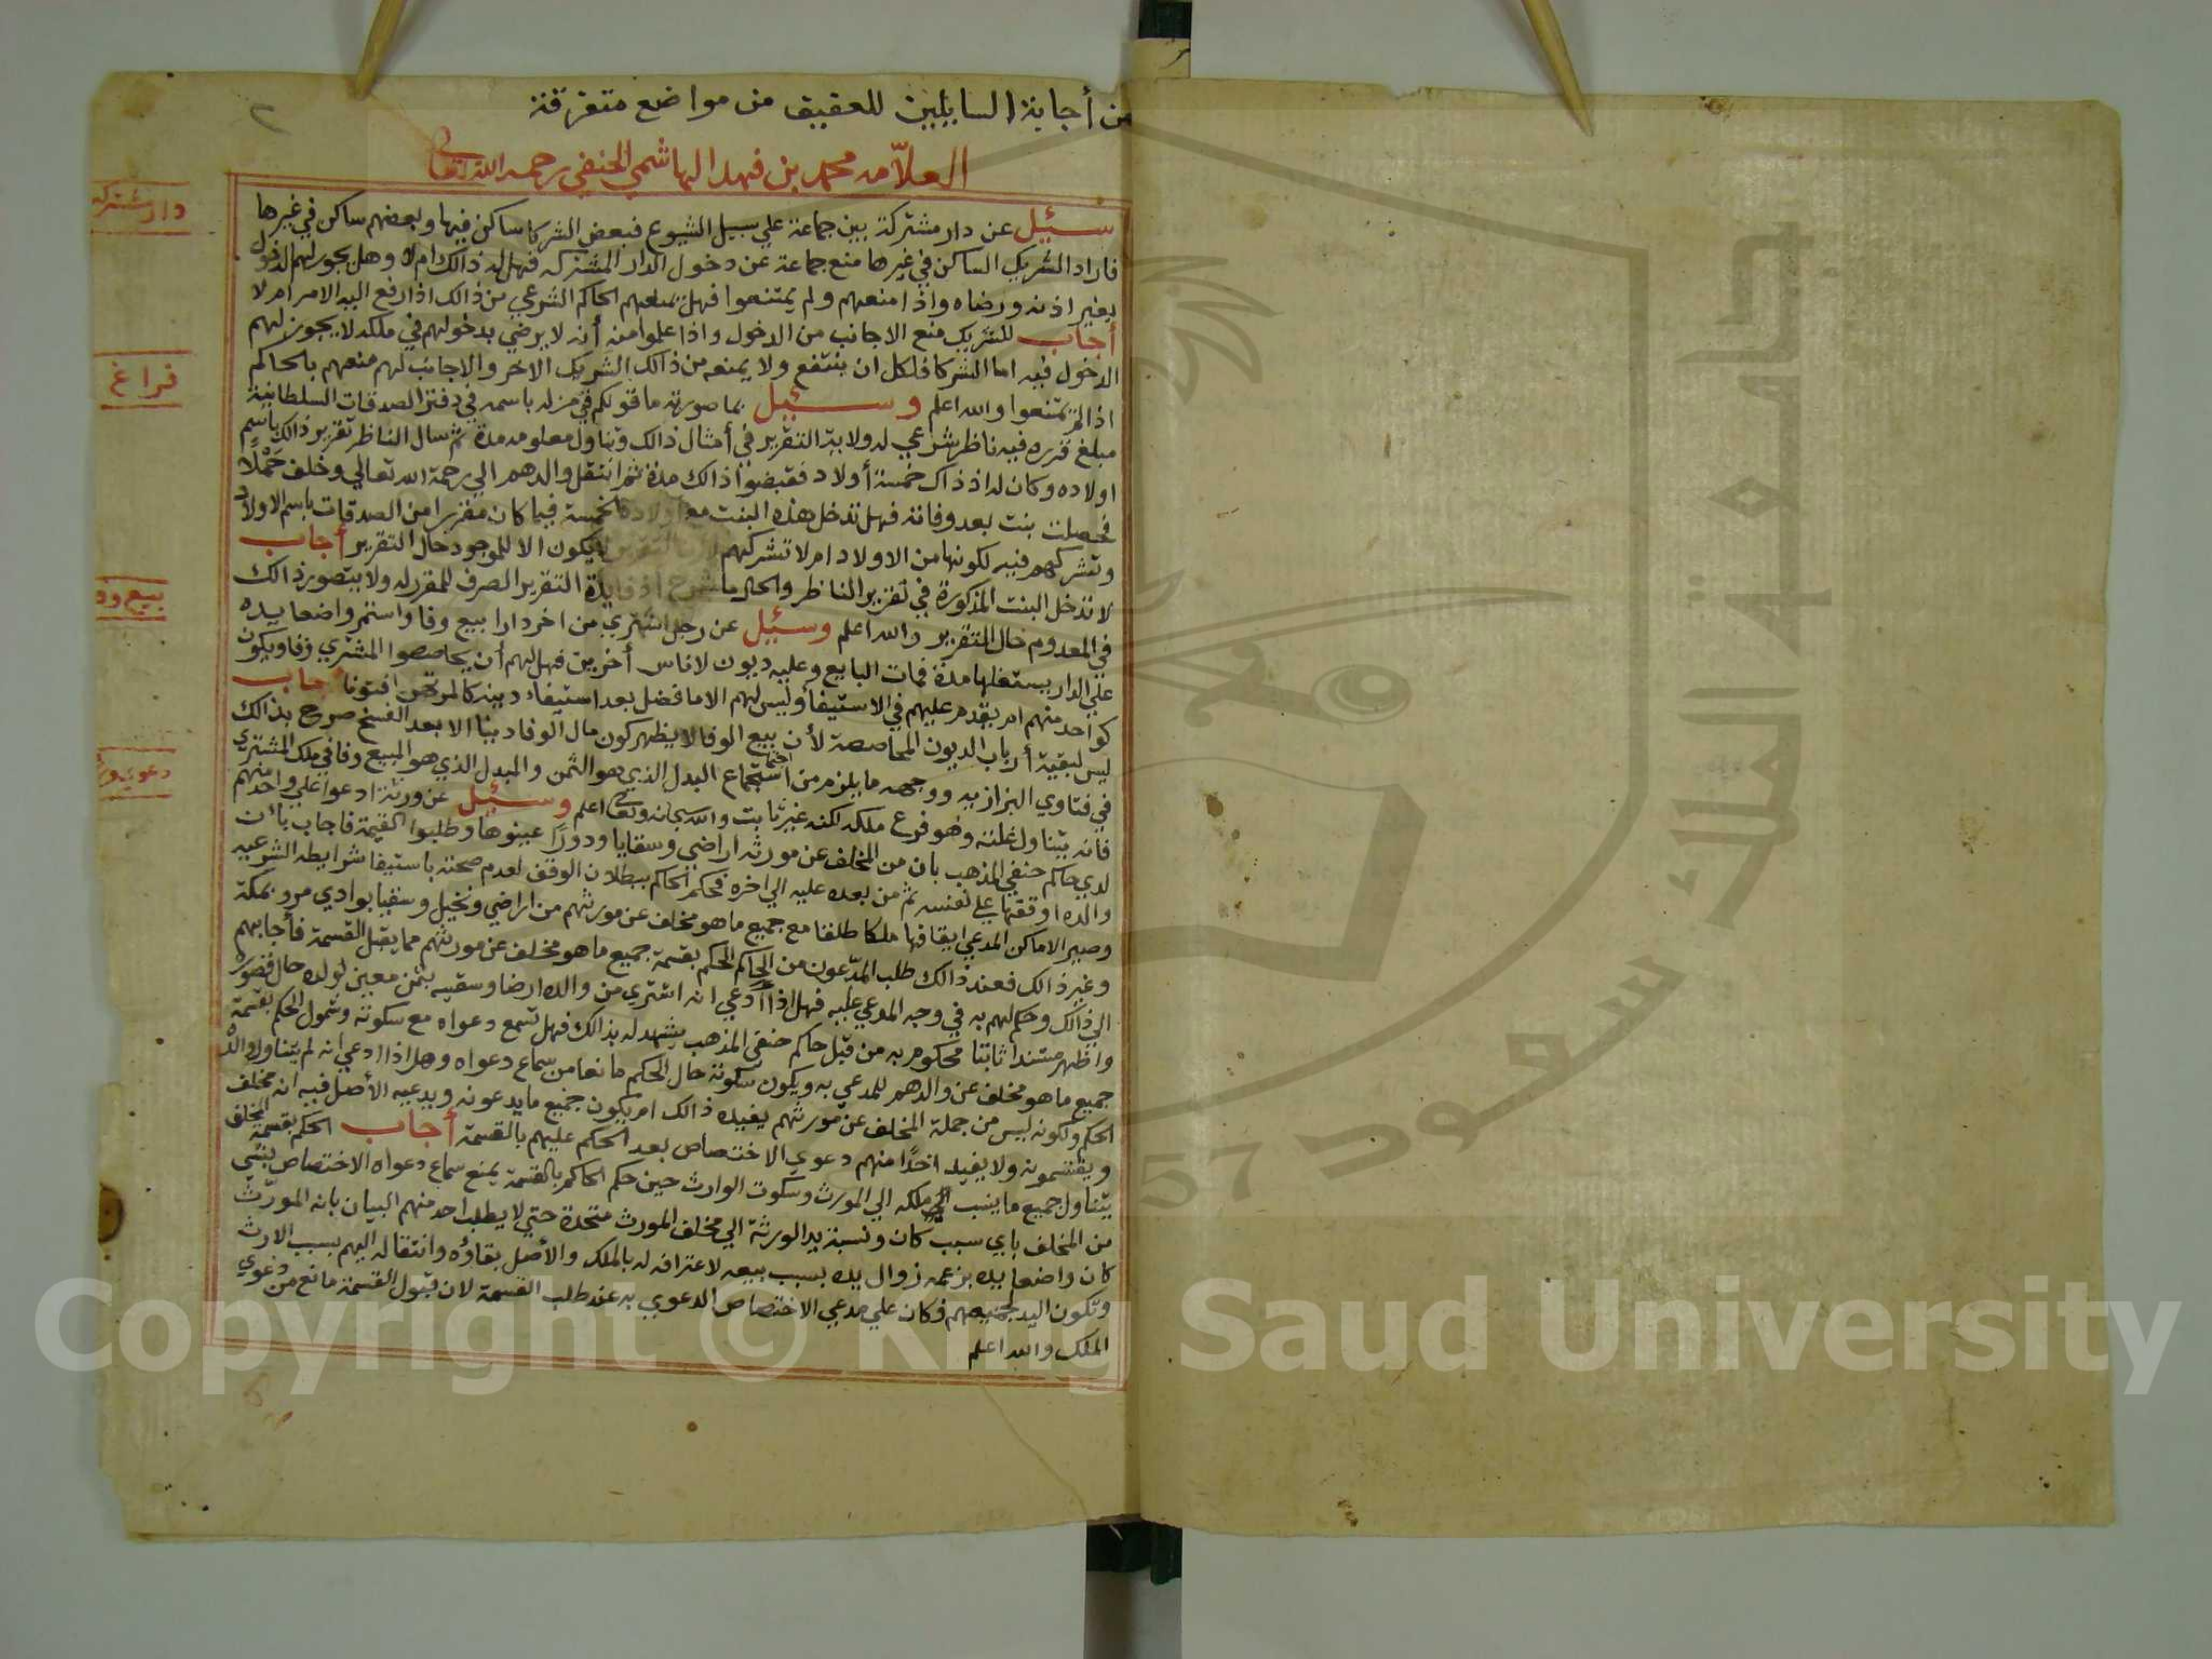 من أجابة السايلين للعفيف من مواضع متفرقة
العلامه محمد بن فهد الهاشمي الحنفي رحمه الله تعالى
سئيل عن دار مشتركة بين جماعة علي سبيل الشيوع فبعض الشركا ساكن فيها وبعضهم ساكن في غيرها
فاراد الشريك الساكن في غيرها منع جماعة عن دخول الدار المشتركه فهل له ذالك ام لا وهل يجوز لهم الدخول
بغير اذنه ورضاه واذا منعهم ولم يمتنعوا فهل يمنعهم الحاكم الشرعي من ذالك اذا رفع اليه الامر ام لا
أجاب للشريك منع الاجانب من الدخول واذا علموا منه أنه لا يرضي بدخولهم في ملكه لا يجوز لهم
الدخول فيه اما الشركا فلكل ان ينتفع ولا يمنعه من ذالك الشريك الاخر والاجانب لهم منعهم بالحاكم
اذا لم يمتنعوا والله اعلم وسئيل بما صورته ما قولكم في من له باسمه في دفتر الصدقات السلطانية
مبلغ قرره فيه ناظر شرعي له ولاية التقرير في أمثال ذالك وتناول معلومه مدة ثم سال الناظر تقرير ذالك باسم
اولاده وكان له اذ ذاك خمسة أولاد فقبضوا ذالك مدة ثم انتقل والدهم الي رحمة الله تعالي وخلف حملا
فحصلت بنت بعد وفاته فهل تدخل هذه البنت مع اولاده الخمسة فيما كان مقررا من الصدقات باسم الاولاد
وتشركهم فيه لكونها من الاولاد ام لا تشركهم لان التقرير لا يكون الا للموجود حال التقرير أجاب
لا تدخل البنت المذكورة في تقرير الناظر والحال ما شرح اذ فايدة التقرير الصرف للمقرر له ولا يتصور ذالك
في المعدوم حال التقرير والله اعلم وسئيل عن رجل اشتري من اخر دارا بيع وفا واستمر واضعا يده
علي الدار يستغلها مدة فمات البايع وعليه ديون لاناس أخرين فهل لهم أن يحاصصوا المشتري وفا ويكون
كواحد منهم ام يقدم عليهم في الاستيفا وليس لهم الا ما فضل بعد استيفاء دينه كالمرتهن افتونا أجاب
ليس لبقية أرباب الديون المحاصصة لأن بيع الوفا لا يظهر كون مال الوفا دينا الا بعد الفسخ صرح بذالك
في فتاوي البزازيه ووجهه ما يلزم من اجتماع البدل الذي هو الثمن والمبدل الذي هو المبيع وفا في ملك المشتري
فانه يتناول غلته وهو فرع ملكه لكنه غير ثابت والله سبحانه وتعالى اعلم وسئيل عن ورثة ادعوا علي واحد منهم
لدي حاكم حنفي المذهب بان من المخلف عن مورثه اراضي وسقايا ودورا عينوها وطلبوا القيمة فاجاب بان
والده اوقفها علي نفسه ثم من بعده عليه الي اخره فحكم الحاكم ببطلان الوقف لعدم صحته باستيفا شرايطه الشرعيه
وصير الاماكن المدعي ايقافها ملكا طلقا مع جميع ما هو مخلف عن مورثهم من اراضي ونخيل وسقيا بوادي مر وبمكة
وغير ذالك فعند ذالك طلب المدعون من الحاكم الحكم بقسمة جميع ما هو مخلف عن مورثهم مما يقبل القسمة فأجابهم
الي ذالك وحكم لهم به في وجه المدعي عليه فهل اذا أدعي انه اشتري من والده ارضا وسقيه بثمن معين لولده حال قصوره
واظهر مستندا ثابتا محكوم به من قبل حاكم حنفي المذهب يشهد له بذالك فهل تسمع دعواه مع سكوته وشمول الحكم بقسمة
جميع ما هو مخلف عن والدهم للمدعي به ويكون سكوته حال الحكم مانعا من سماع دعواه وهل اذا ادعي انه لم يتناوله
الحكم ولكونه ليس من جملة المخلف عن مورثهم يفيده ذالك ام يكون جميع ما يدعونه ويدعيه الأصل فيه انه مخلف
ويقتسمونه ولا يفيد احدا منهم دعوي الاختصاص بعد الحكم عليهم بالقسمة أجاب الحكم بقسمة المخلف
يتناول جميع ما ينسب ملكه الي المورث وسكوت الوارث حين حكم الحاكم بالقسمة يمنع سماع دعواه الاختصاص بشي
من المخلف باي سبب كان ونسبة يد الورثة الي مخلف المورث متحدة حتي لا يطلب احد منهم البيان بانه المورث
كان واضعا يده بزعمه زوال يده بسبب بيعه لاعترافه له بالملك والأصل بقاؤه وانتقاله اليهم بسبب الارث
وتكون اليد لجميعهم فكان علي مدعي الاختصاص الدعوي به عند طلب القسمة لان قبول القسمة مانع من دعوي
الملك والله اعلم
دار مشتركه
فراغ
بيع
دعوي
جامعة الملك سعود
Copyright © King Saud University